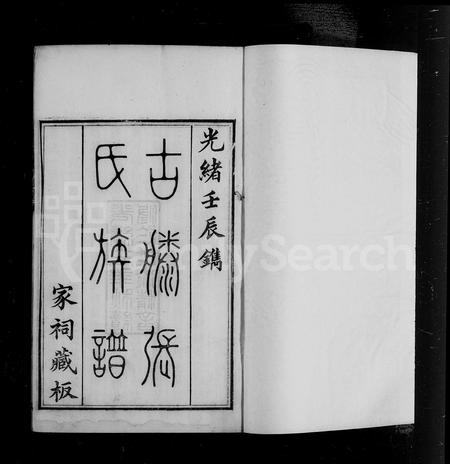 光緒壬辰鐫
古滕張
氏族譜
家祠藏板
FamilySearch